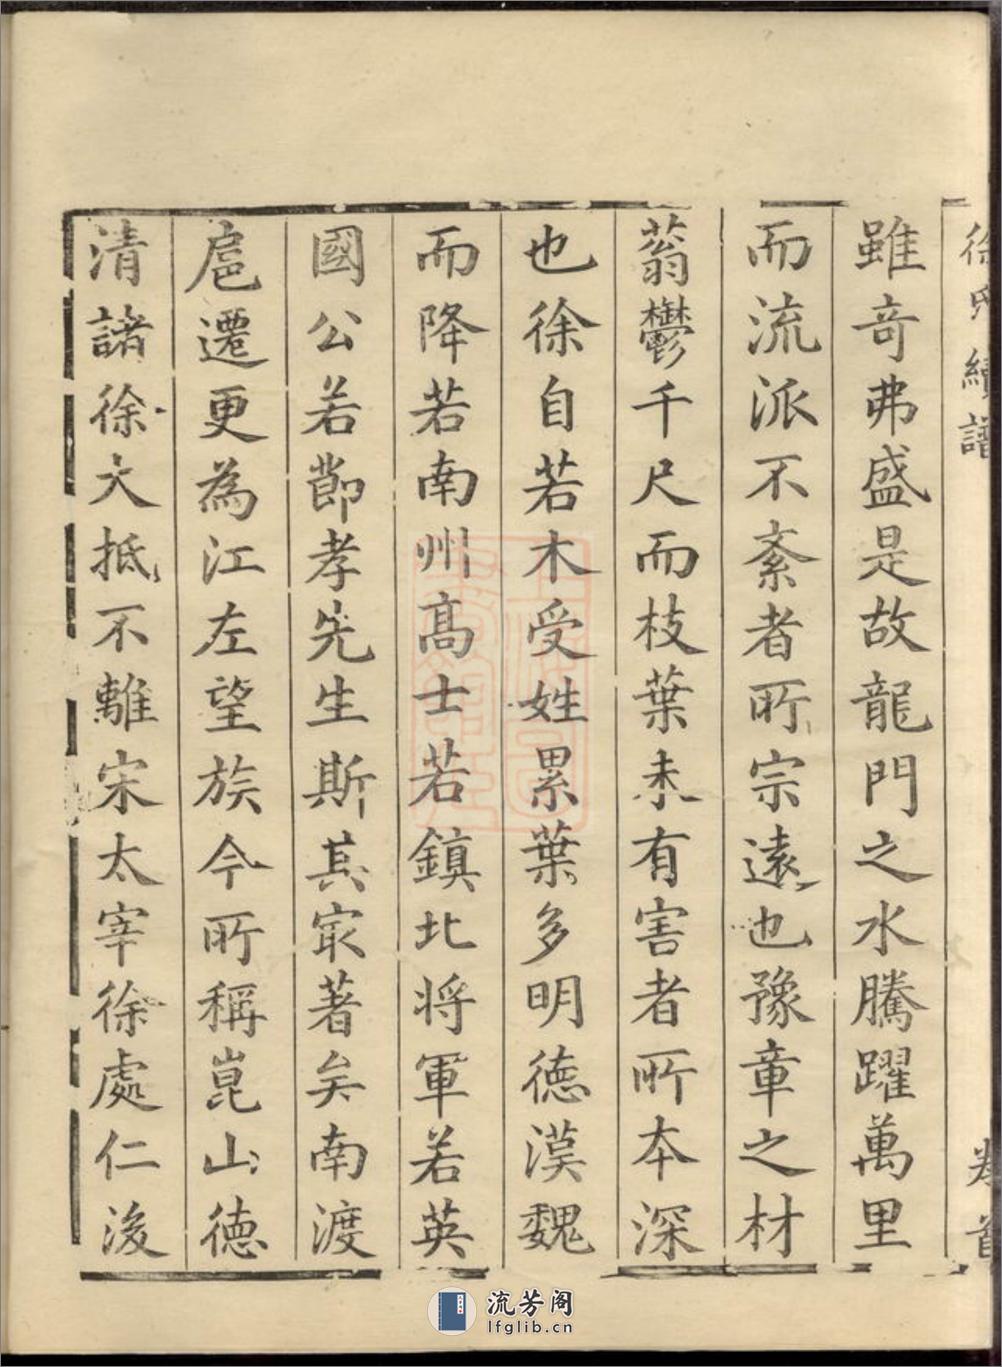 徐氏續譜 卷首
雖奇弗盛是故龍門之水騰躍萬里
而流派不紊者所宗遠也豫章之材
蓊鬱千尺而枝葉未有害者所本深
也徐自若木受姓累葉多明德漢魏
而降若南州高士若鎮北将軍若英
國公若節孝先生斯其㝡著矣南渡
扈遷更為江左望族今所稱崑山德
清諸徐大抵不離宋太宰徐處仁後
流芳阁
lfglib.cn